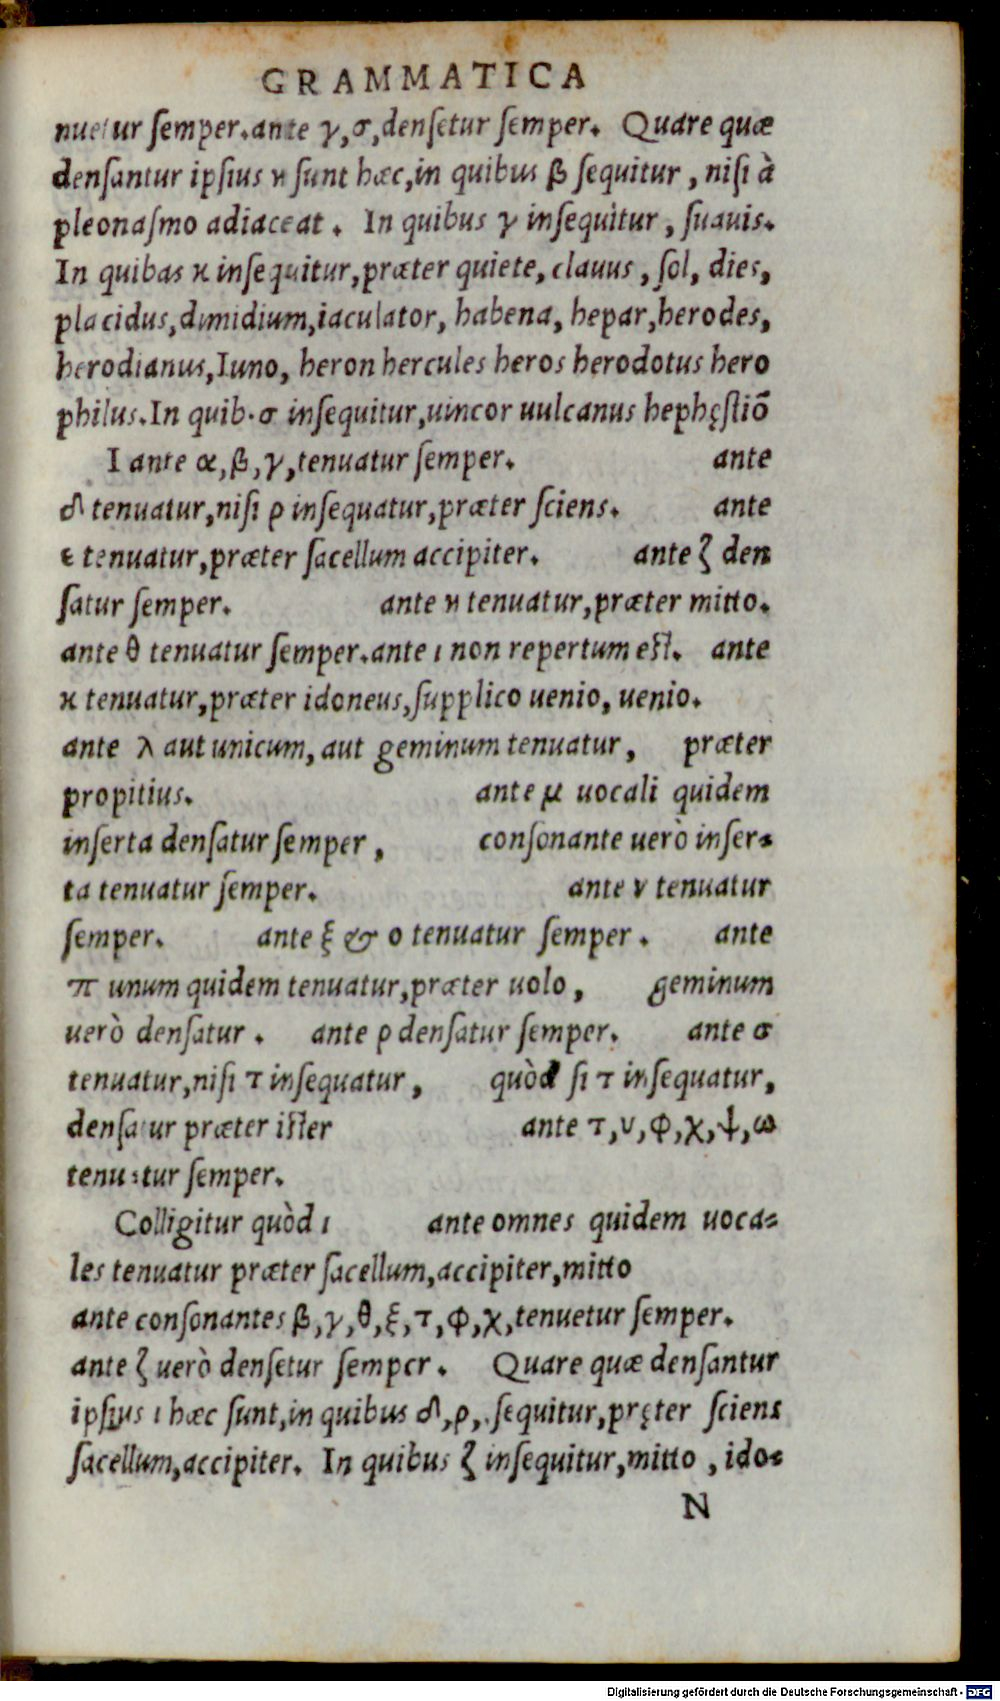 GRAMMATICA
nuetur ſemper.ante γ,σ,denſetur ſemper. Quare quæ
denſantur ipſius η ſunt hæc,in quibus β ſequitur, niſi à
pleonaſmo adiaceat. In quibus γ inſequitur, ſuauis.
In quibas κ inſequitur,præter quiete, clauus, ſol, dies,
placidus,dimidium,iaculator, habena, hepar,herodes,
herodianus,Iuno, heron hercules heros herodotus hero
philus.In quib. σ inſequitur,uincor uulcanus hephęſtiō
I ante α,β,γ,tenuatur ſemper. ante
δ tenuatur,niſi ρ inſequatur,præter ſciens. ante
ε tenuatur,præter ſacellum accipiter. ante ζ den
ſatur ſemper. ante η tenuatur,præter mitto.
ante θ tenuatur ſemper.ante ι non repertum eſt. ante
κ tenuatur,præter idoneus,ſupplico uenio, uenio.
ante λ aut unicum, aut geminum tenuatur, præter
propitius. ante μ uocali quidem
inſerta denſatur ſemper, conſonante uerò inſer-
ta tenuatur ſemper. ante ν tenuatur
ſemper. ante ξ & ο tenuatur ſemper. ante
π unum quidem tenuatur,præter uolo, geminum
uerò denſatur. ante ρ denſatur ſemper. ante σ
tenuatur,niſi τ inſequatur, quòd ſi τ inſequatur,
denſatur præter iſter ante τ,υ,φ,χ,ψ,ω
tenuatur ſemper.
Colligitur quòd ι ante omnes quidem uoca-
les tenuatur præter ſacellum,accipiter,mitto
ante conſonantes β,γ,θ,ξ,τ,φ,χ,tenuetur ſemper.
ante ζ uerò denſetur ſemper. Quare quæ denſantur
ipſius ι hæc ſunt,in quibus δ,ρ,.ſequitur,pręter ſciens
ſacellum,accipiter. In quibus ζ inſequitur,mitto, ido-
N
Digitalisierung gefördert durch die Deutsche Forschungsgemeinschaft - DFG